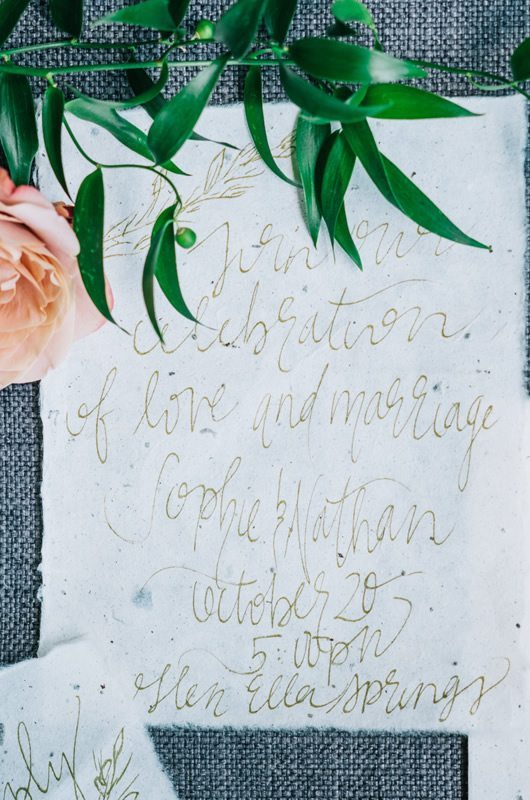 Join our
celebration
of love and marriage
Sophie & Nathan
October 20
5:00pm
Glen Ella Springs
ply